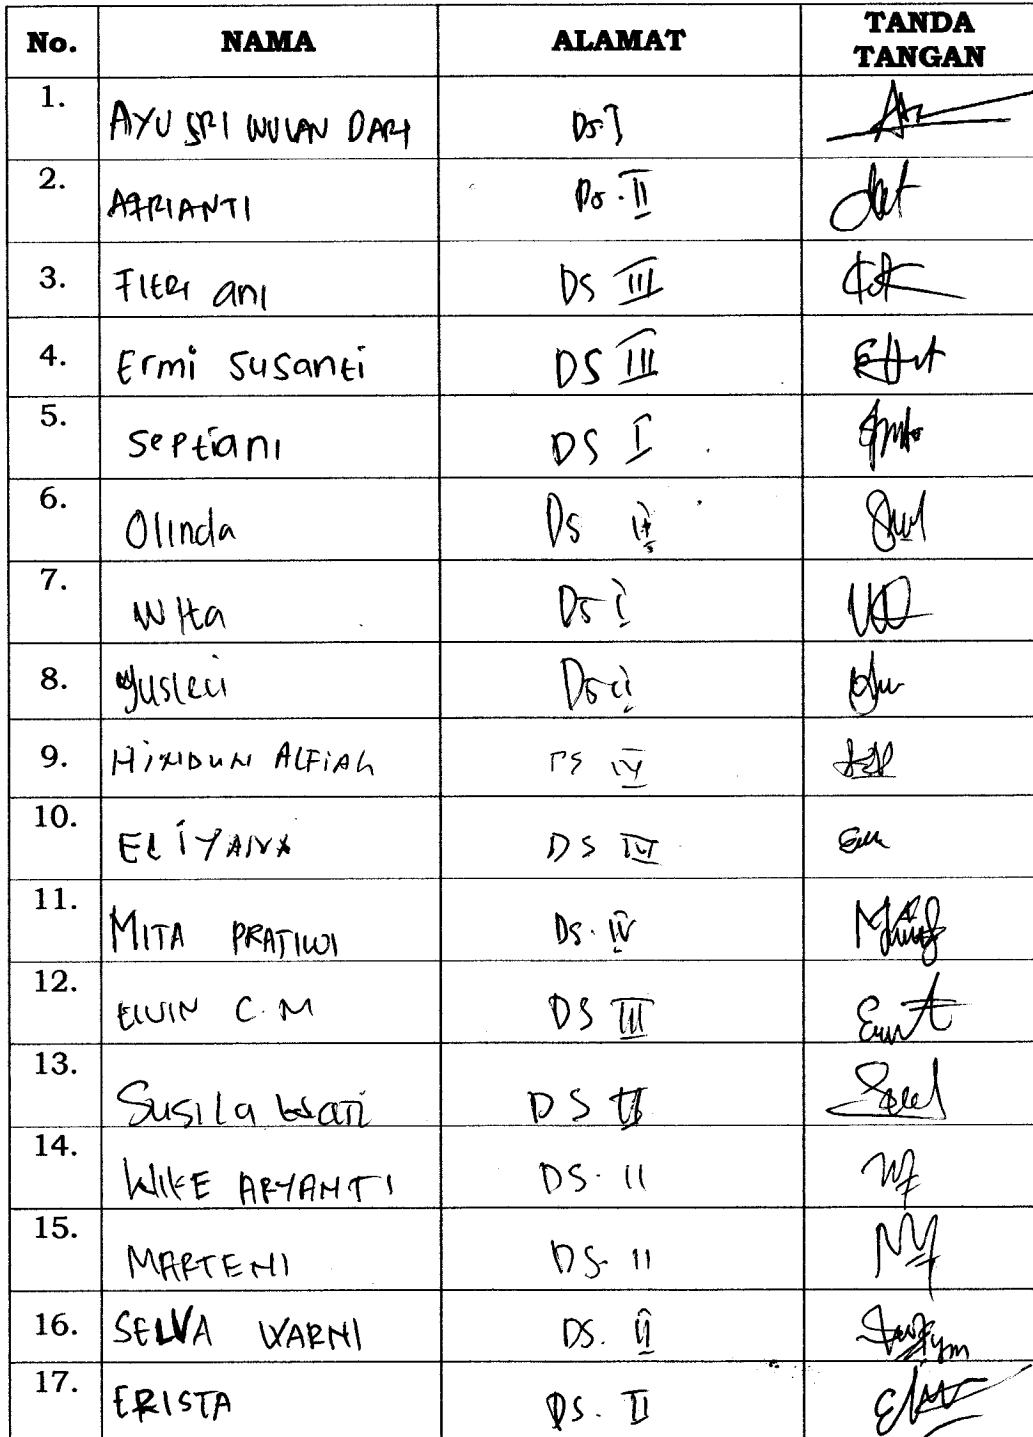 No. NAMA ALAMAT TANDA TANGAN
1. AYU SRI WULAN DARI Ds. I
2. AFRIANTI Ds. II
3. Fitri ani DS III
4. Ermi Susanti DS III
5. Septiani DS I
6. Olinda Ds
7. Wita Ds I
8. Yusleci Ds II
9. HINDUN ALFIAh DS IV
10. ELIYANA DS IV
11. MITA PRATIWI DS. IV
12. ELVIN C.M DS III
13. Susila Wati DS II
14. WIKE ARYANTI DS. II
15. MARTENI DS. II
16. SELVA WARNI DS. II
17. ERISTA DS. II